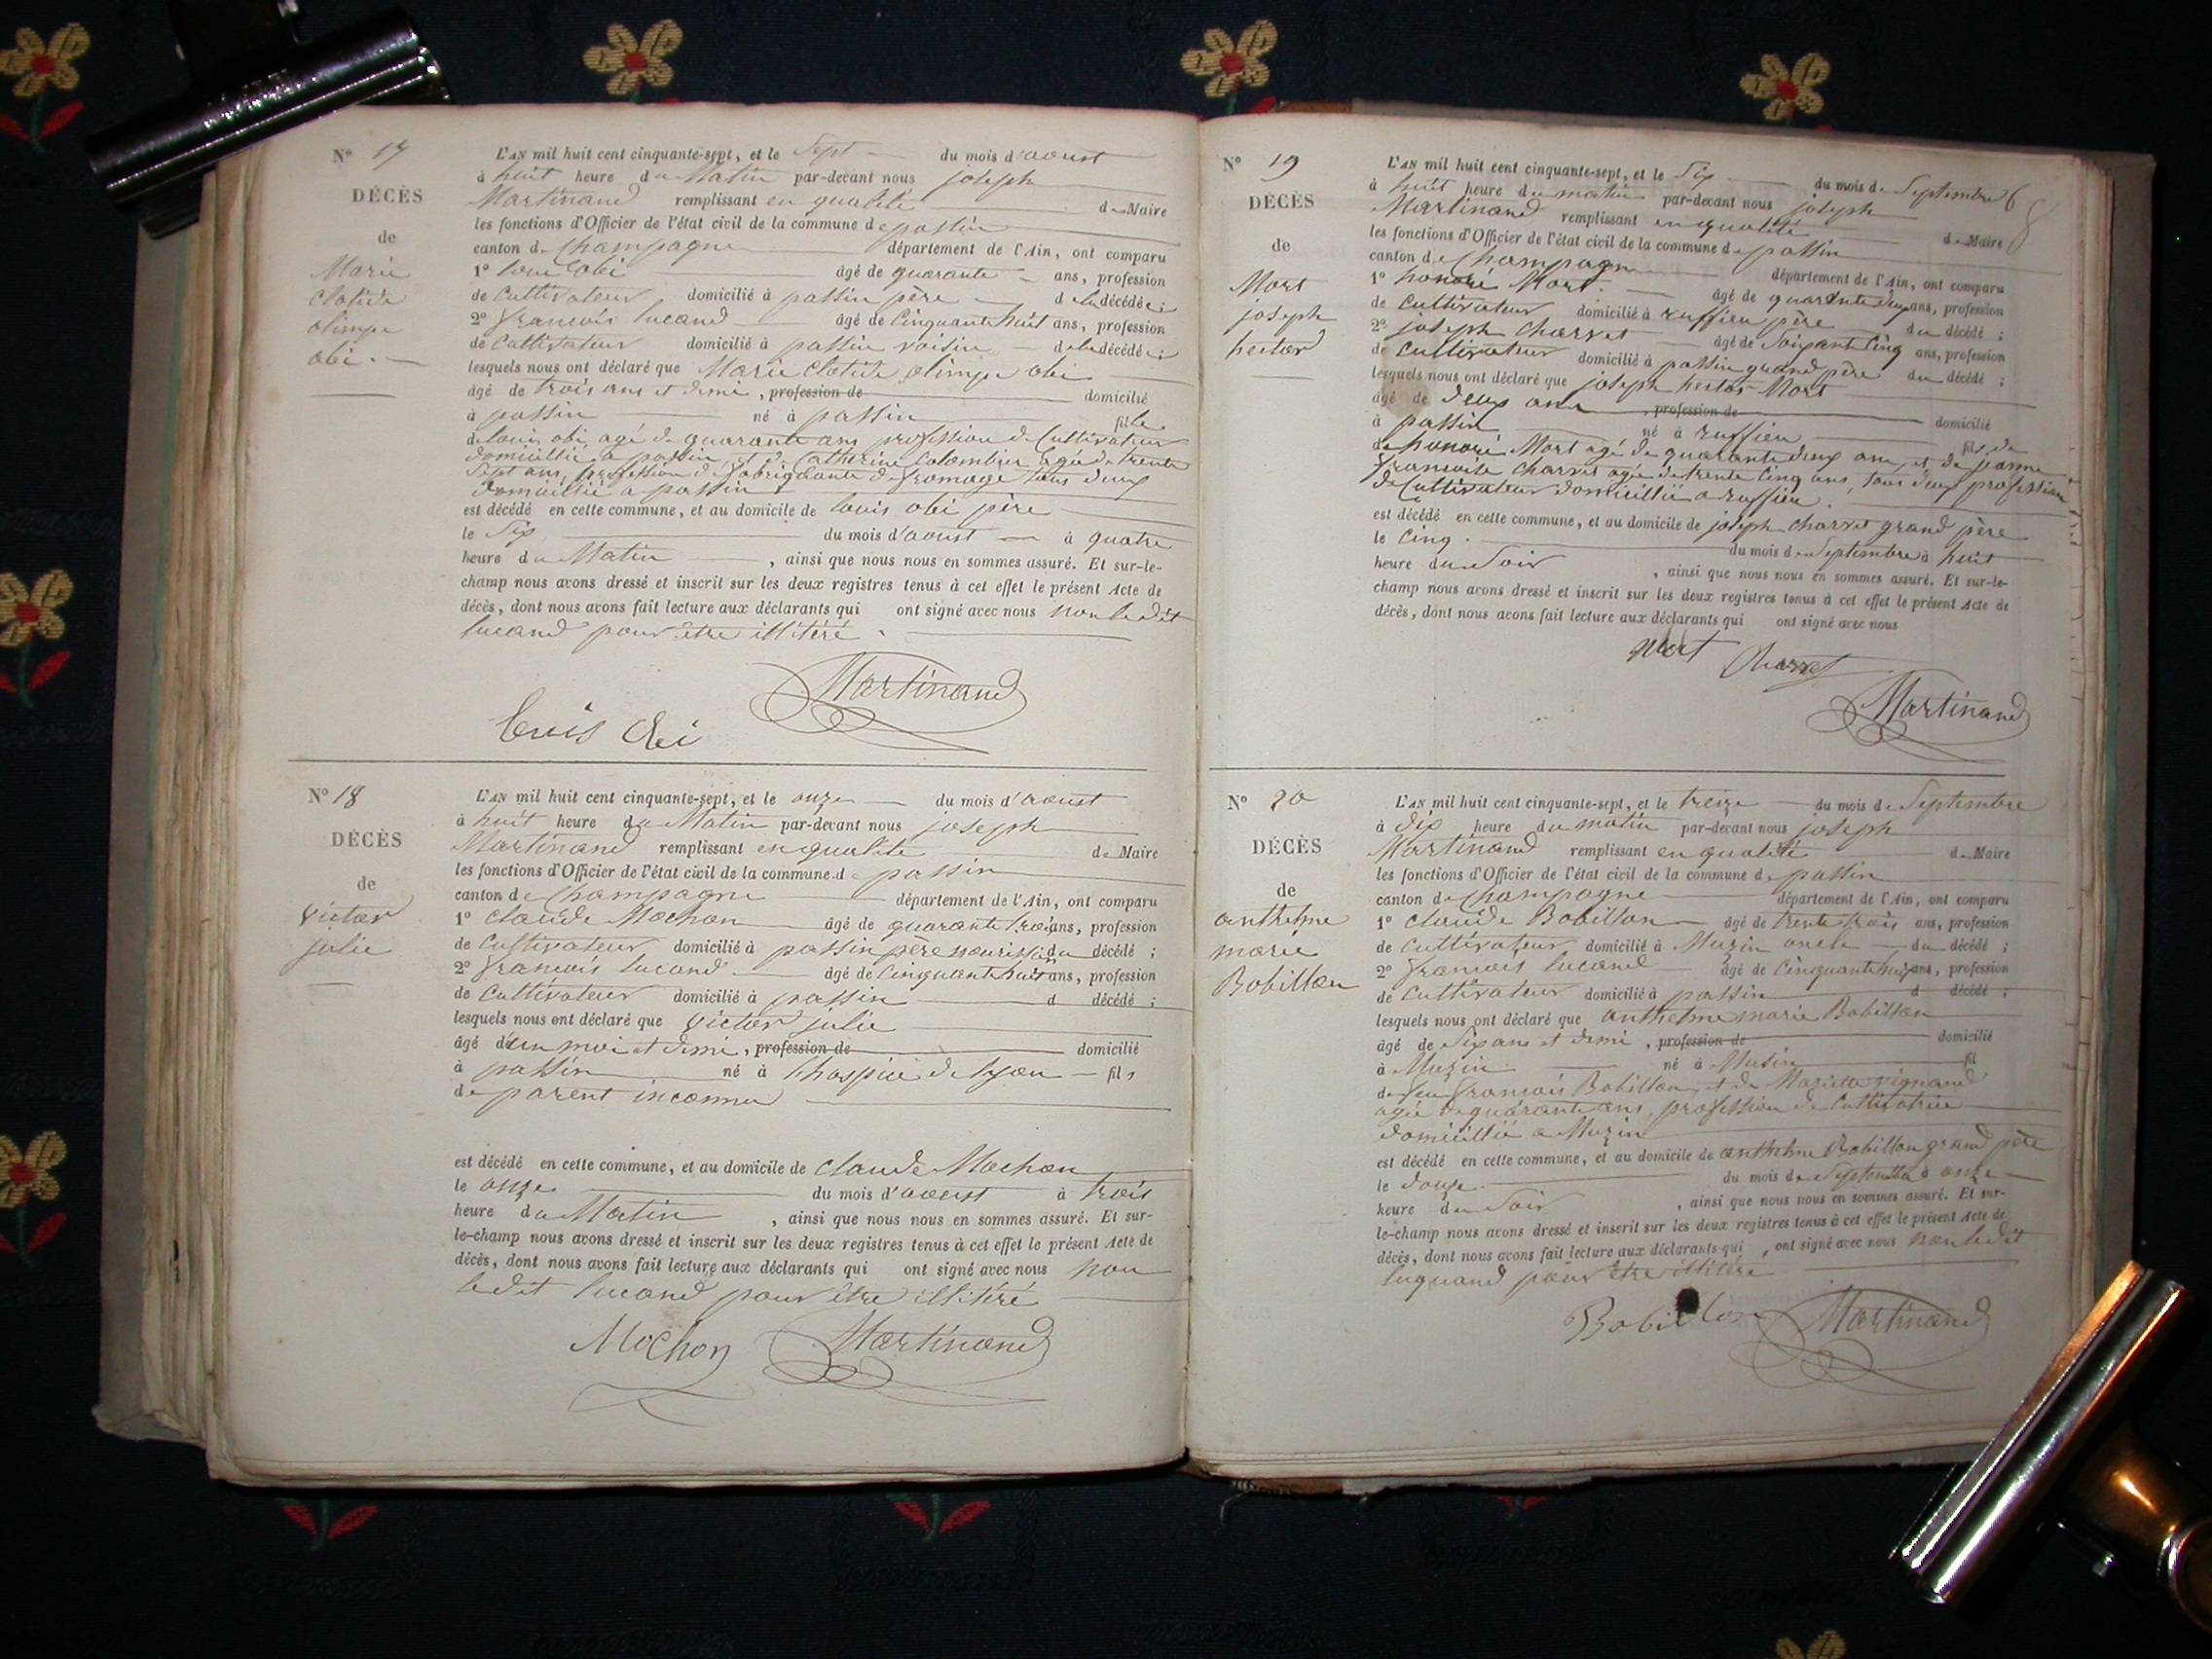 N° 17
DÉCÈS
de
Marie
Clotide
olimpe
obi
L'AN mil huit cent cinquante-sept, et le Sept du mois d'aoust
à huit heure du Matin par-devant nous joseph
Martinand remplissant en qualité de Maire
les fonctions d'Officier de l'état civil de la commune de passin
canton de Champagne département de l'Ain, ont comparu
1° louis obi âgé de quarante ans, profession
de Cultivateur domicilié à passin père de la décédée ;
2° francois lucand âgé de Cinquante huit ans, profession
de Cultivateur domicilié à passin voisin de la décédée ;
lesquels nous ont déclaré que Marie Clotide olimpe obi
âgé de trois ans et demi, profession de domicilié
à passin né à passin fille
de louis obi agé de quarante ans profession de Cultivateur
domicillié a passin et de Catherine Colombier agée de trente
Sept ans, profession de fabriquante de fromage tous deux
domicillié a passin
est décédé en cette commune, et au domicile de louis obi père
le Six du mois d'aoust à quatre
heure du Matin, ainsi que nous nous en sommes assuré. Et sur-le-
champ nous avons dressé et inscrit sur les deux registres tenus à cet effet le présent Acte de
décès, dont nous avons fait lecture aux déclarants qui ont signé avec nous non le dit
lucand pour être illitéré.
Martinand
louis obi
N° 18
DÉCÈS
de
victor
julie
L'AN mil huit cent cinquante-sept, et le onze du mois d'aoust
à huit heure du Matin par-devant nous joseph
Martinand remplissant en qualité de Maire
les fonctions d'Officier de l'état civil de la commune de passin
canton de Champagne département de l'Ain, ont comparu
1° claude Mochon âgé de quarante trois ans, profession
de Cultivateur domicilié à passin père nourissier du décédé ;
2° francois lucand âgé de Cinquante huit ans, profession
de Cultivateur domicilié à passin d décédé ;
lesquels nous ont déclaré que victor julie
âgé d'un moi et demi, profession de domicilié
à passin né à l'hospice de lyon fils
de parent inconnu
est décédé en cette commune, et au domicile de claude Mochon
le onze du mois d'aoust à trois
heure du Matin, ainsi que nous nous en sommes assuré. Et sur-
le-champ nous avons dressé et inscrit sur les deux registres tenus à cet effet le présent Acte de
décès, dont nous avons fait lecture aux déclarants qui ont signé avec nous non
le dit lucand pour être illitéré
Mochon Martinand
N° 19
DÉCÈS
de
Mort
joseph
hector
L'AN mil huit cent cinquante-sept, et le Six du mois de Septembre 6
à huit heure du matin par-devant nous joseph
Martinand remplissant en qualité de Maire
les fonctions d'Officier de l'état civil de la commune de passin
canton de Champagne département de l'Ain, ont comparu
1° honoré Mort âgé de quarante deux ans, profession
de Cultivateur domicilié à ruffieu père du décédé ;
2° joseph Charvet âgé de Soixante Cinq ans, profession
de Cultivateur domicilié à passin grand père du décédé ;
lesquels nous ont déclaré que joseph hector Mort
âgé de deux ans, profession de domicilié
à passin né à ruffieu fils de
de honoré Mort agé de quarante deux ans, et de jeanne
francoise Charvet agée de trente Cinq ans, tous deux profession
de Cultivateur domicillié a ruffieu.
est décédé en cette commune, et au domicile de joseph Charvet grand père
le Cinq du mois de Septembre à huit
heure du Soir, ainsi que nous nous en sommes assuré. Et sur-le-
champ nous avons dressé et inscrit sur les deux registres tenus à cet effet le présent Acte de
décès, dont nous avons fait lecture aux déclarants qui ont signé avec nous
Mort Charvet
Martinand
N° 20
DÉCÈS
de
anthelme
marie
Bobillon
L'AN mil huit cent cinquante-sept, et le treize du mois de Septembre
à dix heure du matin par-devant nous joseph
Martinand remplissant en qualité de Maire
les fonctions d'Officier de l'état civil de la commune de passin
canton de Champagne département de l'Ain, ont comparu
1° claude Bobillon âgé de trente trois ans, profession
de Cultivateur domicilié à Muzin oncle du décédé ;
2° francois lucand âgé de Cinquante huit ans, profession
de Cultivateur domicilié à passin d décédé ;
lesquels nous ont déclaré que anthelme marie Bobillon
âgé de Six ans et demi, profession de domicilié
à Muzin né à Musin fil
de feu francois Bobillon, et de Mariette vignand
agée de quarante ans, profession de Cultivatrice
domicillié a Muzin
est décédé en cette commune, et au domicile de anthelme Bobillon grand père
le douze du mois de Septembre à onze
heure du Soir, ainsi que nous nous en sommes assuré. Et sur-
le-champ nous avons dressé et inscrit sur les deux registres tenus à cet effet le présent Acte de
décès, dont nous avons fait lecture aux déclarants qui, ont signé avec nous non le dit
luquand pour être illitéré
Bobillon Martinand